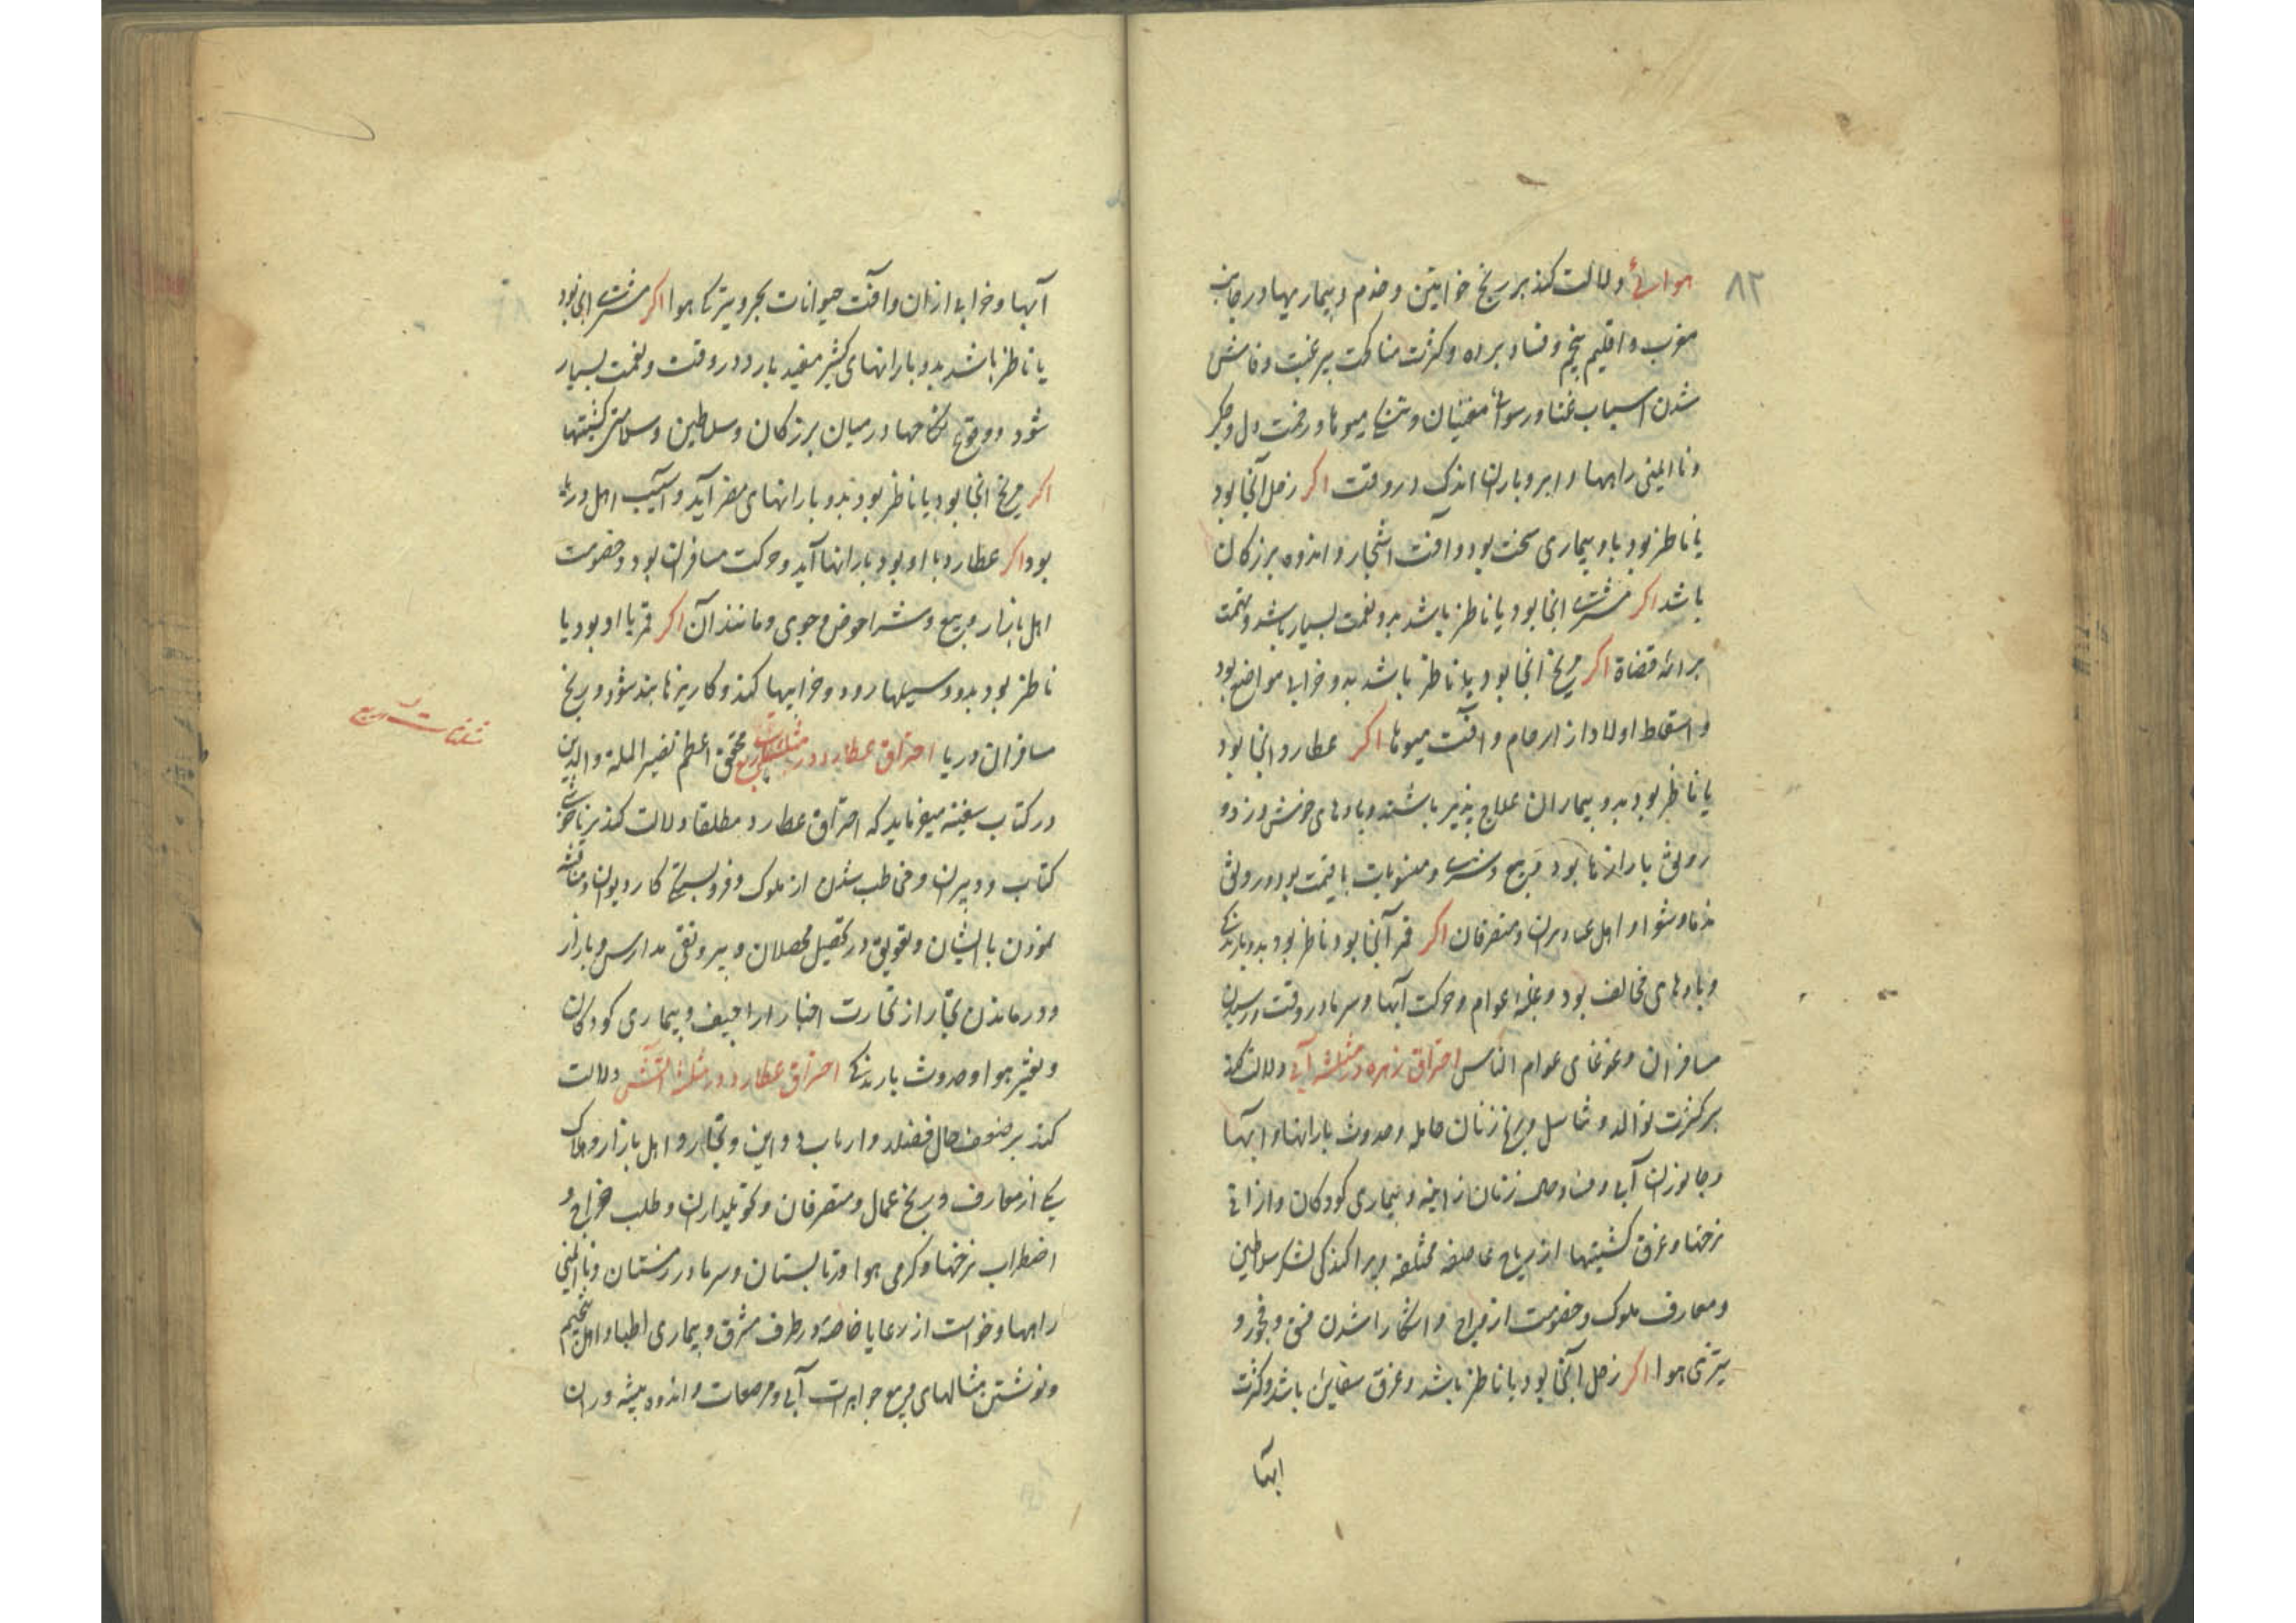 ۸۲
هوائی دلالت کند بر رنج خواتین و خدم و بیماریها در جانب
مغرب و اقلیم پنجم و فساد برده و کثرت مناکحت بیرغبت و فاحش
شدن اسباب غنا و رسوائی مغنیان و تنگی میوها و زحمت دل و جگر
و ناایمنی راهها و ابر و باران اندک در وقت اکر زحل آنجا بود
یا ناظر بود باو بیماری سخت بود و آفت اشجار و اندوه بزرکان
باشد اکر مشتری انجا بود یا ناظر باشد بدو نعمت بسیار باشد و تهمت
بر ائمه قضاة اکر مریخ انجا بود یا ناظر باشد بدو خرابی مواضع بود
و اسقاط اولاد از ارحام و آفت میوها اکر عطارد انجا بود
یا ناظر بود بدو بیماران علاج پذیر باشند و بادهای خوش وزد و
رونق بازارها بود و بیع و شری و منسوبات با قیمت بود و رونق
ندما و شعرا و اهل عمل دیوان و متصرفان اکر قمر آنجا بود و ناظر بود بدو بارندگی
و بادهای مخالف بود و غلبه عوام و حرکت آبها و سرما در وقت و رسیدن
مسافران و غوغای عوام الناس احتراق زهره در مثلثه آبی دلالت کند
بر کثرت توالد و تناسل و رنج زنان حامله و حدوث بارانها و آبها
و جانوران آبی و فساد حال زنان زانیه و بیماری کودکان و ارزانی
نرخها و غرق کشتیها از ریاح عاصفه مختلفه و پراکندگی لشکر سلاطین
و معارف ملوک و خصومت ازواج و آشکارا شدن فسق و فجور و
تیزی هوا اکر زحل آنجا بود یا ناظر باشد و غرق سفاین باشد و کثرت
آبها
آبها و خرابی از آن و آفت حیوانات بحر و تیرگی هوا اکر مشتری انجا بود
یا ناظر باشد بدو بارانهای کثیر مفید بارد در وقت و نعمت بسیار
شود و وقوع نکاحها در میان بزرکان و سلاطین و سلامتی کشتیها
اکر مریخ انجا بود یا ناظر بود بدو بارانهای مضر آید و آسیب اهل دریا
بود اکر عطارد با او بود بارانها آید و حرکت مسافران بود و خصومت
اهل بازار و بیع و شرا حوض و جوی و مانند آن اکر قمر با او بود یا
ناظر بود بدو و سیلها رود و خرابیها کند و کاریزها بند شود و رنج
مسافران دریا احتراق عطارد در مثلثات محقق اعظم نصیر الملة والدین
در کتاب سفینه میفرماید که احتراق عطارد مطلقا دلالت کند بر ناخوشی
کتاب و دبیران و مخاطب شدن از ملوک و فروبستگی کار دیوان و مناقشه
نمودن با ایشان و تعویق در تحصیل محصلان و بیرونقی مدارس و بازار
و درماندن تجار از تجارت اخبار اراجیف و بیماری کودکان
و تغیر هوا و حدوث بارندگی احتراق عطارد در مثلثه آتشی دلالت
کند بر ضعف حال فضلا و ارباب دواوین و تجار و اهل بازار و هلاک
یکی از معارف و رنج عمال و متصرفان و تحویلداران و طلب خراج و
اضطراب نرخها و گرمی هوا در تابستان و سرما در زمستان و ناایمنی
راهها و خواست از رعایا خاصه در طرف مشرق و بیماری اطبا و اهل تنجیم
و نوشتن مثالهای و بیع جواهرات آبی و مرصعات و اندوه پیشه وران